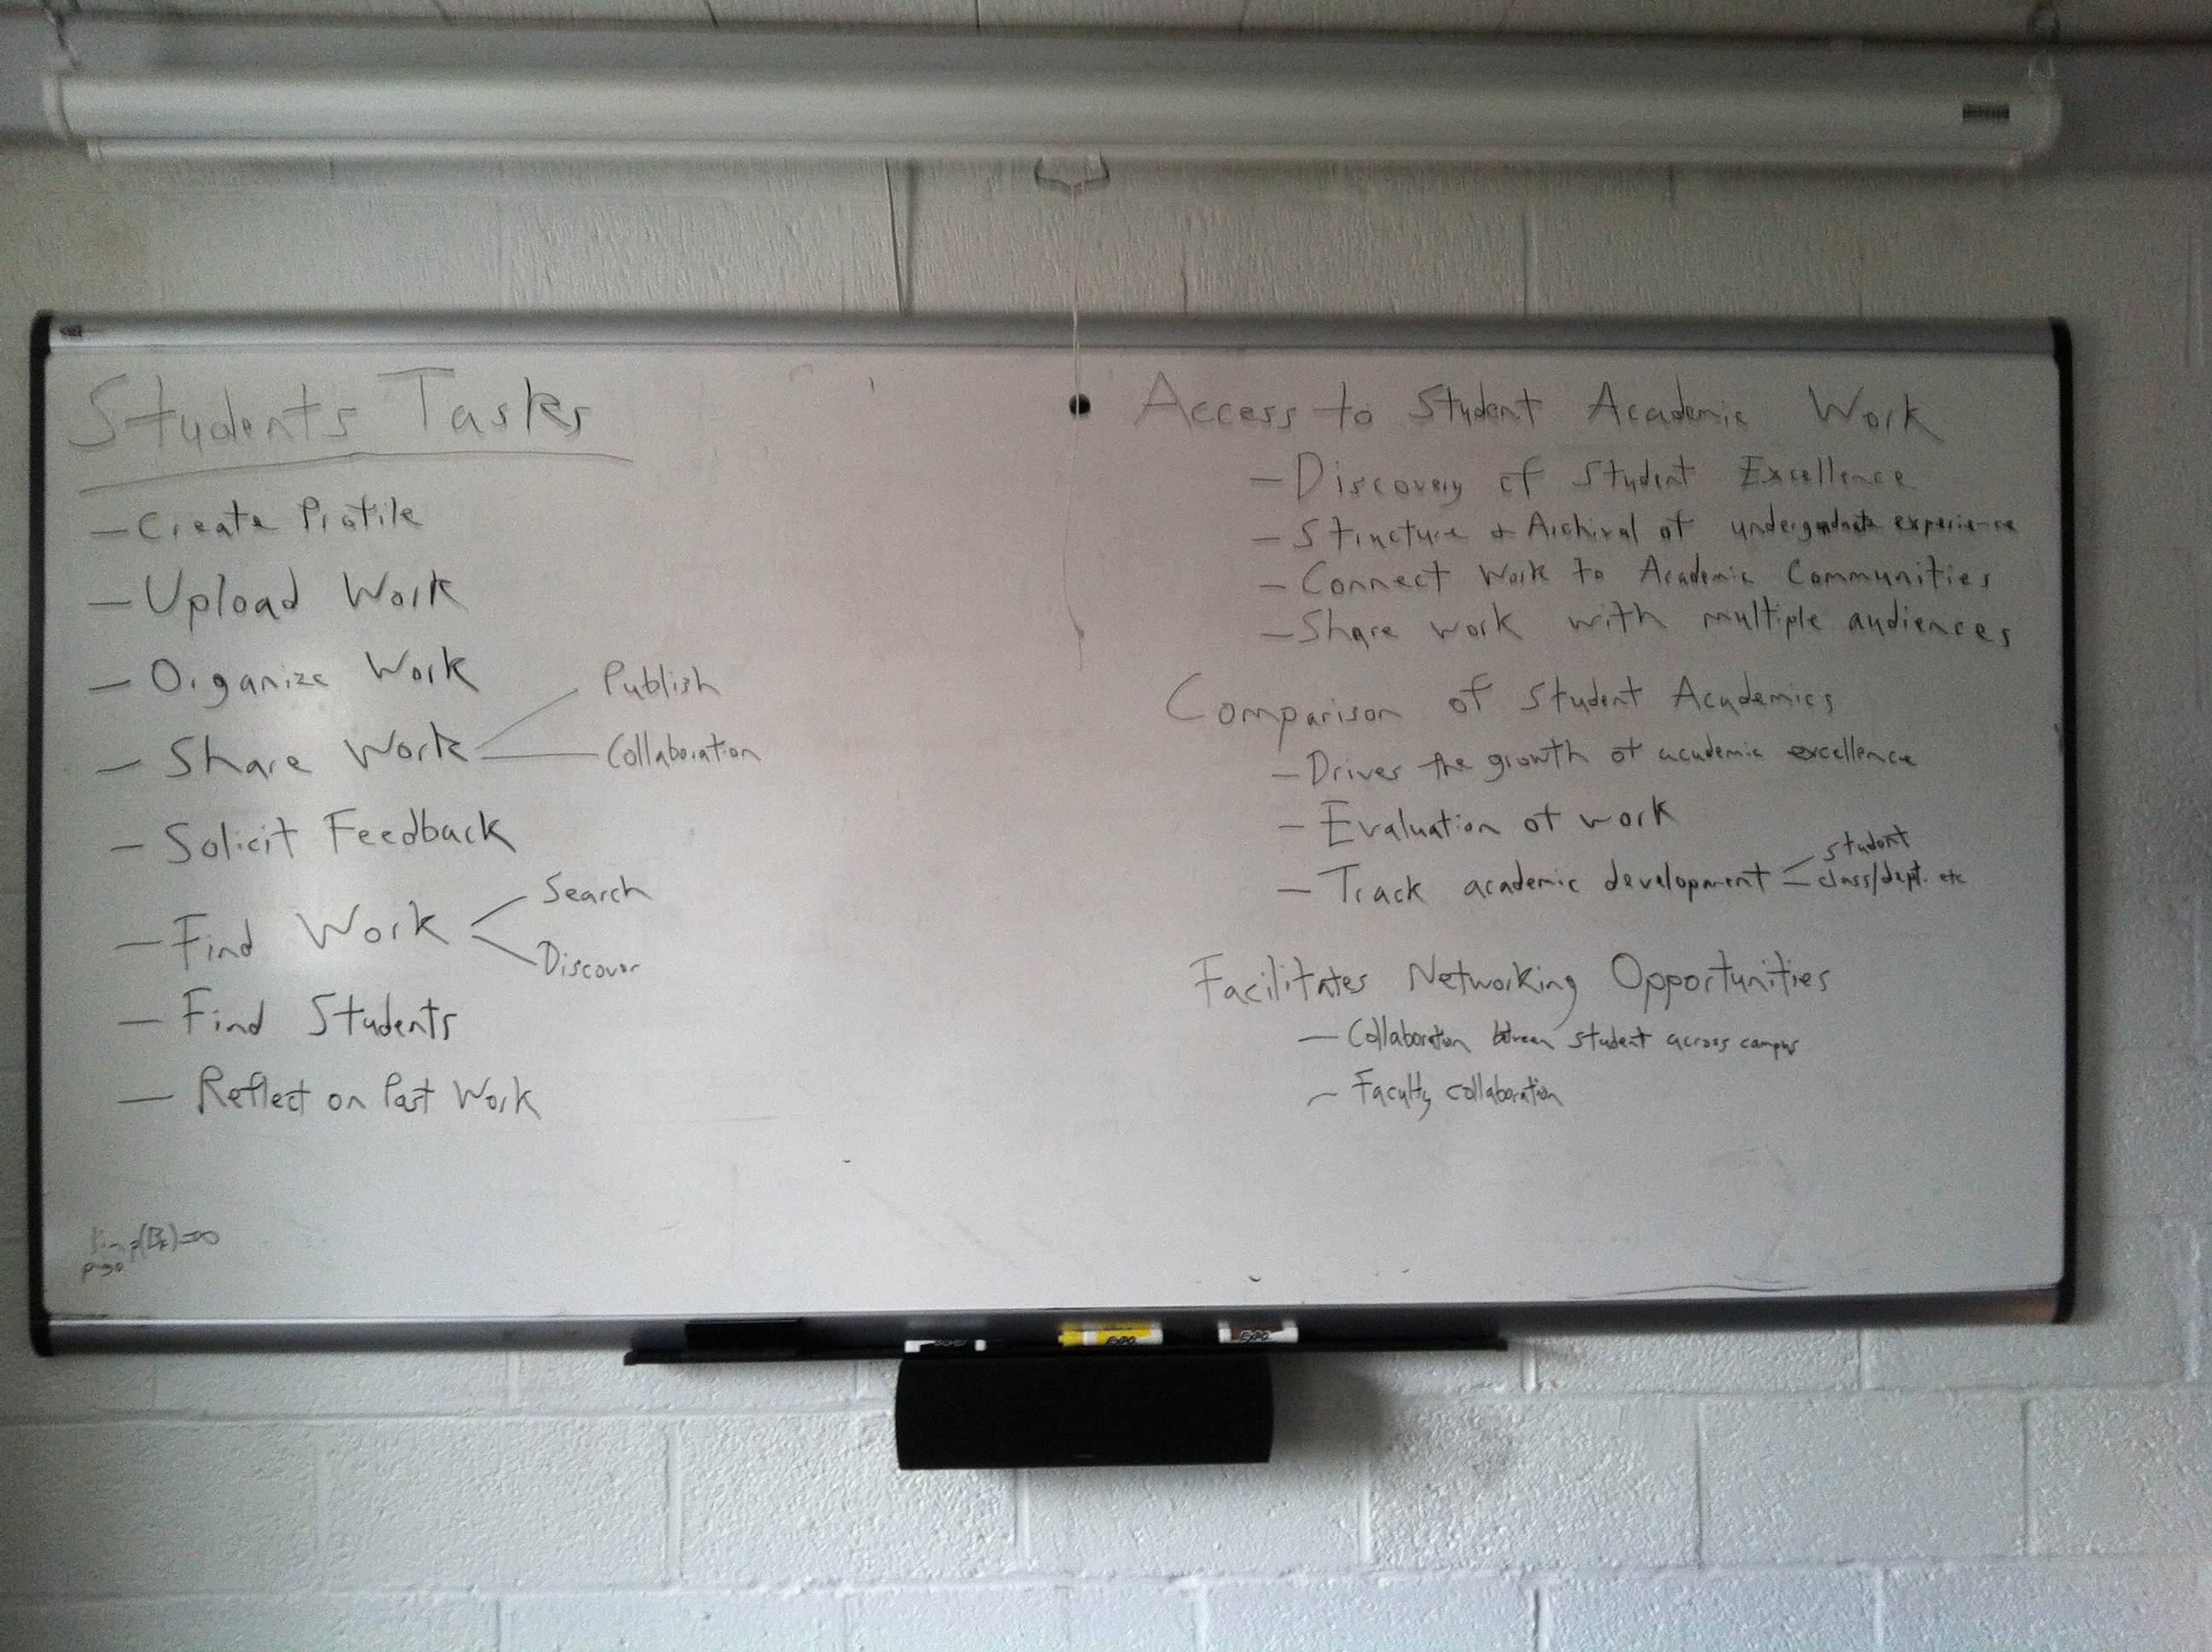 Students Tasks
- Create Profile
- Upload Work
- Organize Work
- Share Work
Publish
Collaboration
- Solicit Feedback
- Find Work
Search
Discover
- Find Students
- Reflect on Past Work
Access to Student Academic Work
- Discovery of Student Excellence
- Structure + Archival of undergraduate experience
- Connect Work to Academic Communities
- Share work with multiple audiences
Comparison of Student Academics
- Drives the growth of academic excellence
- Evaluation of work
- Track academic development
student
class/dept. etc
Facilitates Networking Opportunities
- Collaboration btween student across campus
- Faculty collaboration
EXPO
EXPO